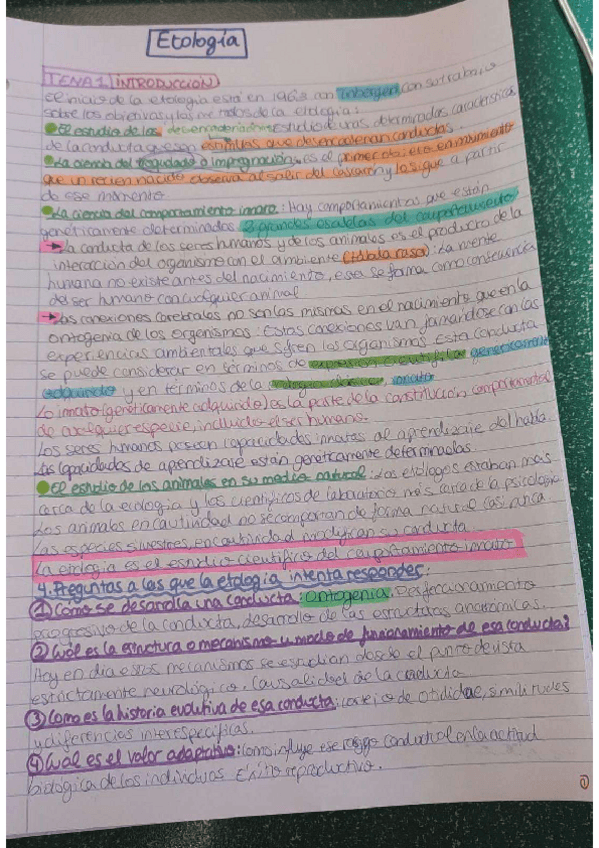 Etología
TEMA 1. INTRODUCCIÓN
El inicio de la etología está en 1963 con Tinbergen con su trabajo
sobre los objetivos y los métodos de la etología:
El estudio de los desencadenadores: Estructuras, determinadas características
de la conducta que son estímulos que desencadenan conductas.
La ciencia del troquelado o impregnación: es el primer objeto en movimiento
que un recien nacido observa al salir del cascarón y los que a partir
de ese momento
La ciencia del comportamiento innato: Hay comportamientos que están
genéticamente determinados. 2 grandes escuelas del comportamiento
La conducta de los seres humanos y de los animales es el producto de la
interacción del organismo con el ambiente (tabla rasa): La mente
humana no existe antes del nacimiento, esta se forma como consecuencia
del ser humano con cualquier animal
Las conexiones cerebrales no son las mismas en el nacimiento que en la
ontogenia de los organismos: Estas conexiones van formandose con las
experiencias ambientales que sufren los organismos. Esta conducta
se puede considerar en términos de genéticamente
adquirido y en términos de la innato
Lo innato (genéticamente adquirido) es la parte de la constitución comportamental
de cualquier especie, incluido el ser humano.
Los seres humanos poseen capacidades innatas al aprendizaje del habla.
Las capacidades de aprendizaje están geneticamente determinadas
El estudio de los animales en su medio natural: Los etólogos estaban más
cerca de la ecología y los científicos de laboratorio más cerca de la psicología
Los animales en cautividad no se comportan de forma natural casi nunca
Las especies silvestres en cautividad modifican su conducta.
La etología es el estudio científico del comportamiento innato
4. Preguntas a las que la etología intenta responder:
① Cómo se desarrolla una conducta: ontogenia. Desfuncionamiento
progresivo de la conducta, desarrollo de las estructuras anatómicas.
② Cuál es la estructura o mecanismo u modo de funcionamiento de esa conducta?
Hoy en día esos mecanismos se estudian desde el punto de vista
estrictamente neurológico. Causalidad de la conducta
③ Como es la historia evolutiva de esa conducta: cortejo de otididae, similitudes
y diferencias interespecíficas.
④ Cual es el valor adaptativo: Como influye ese rasgo conductual en la actitud
biológica de los individuos Éxito reproductivo.
①